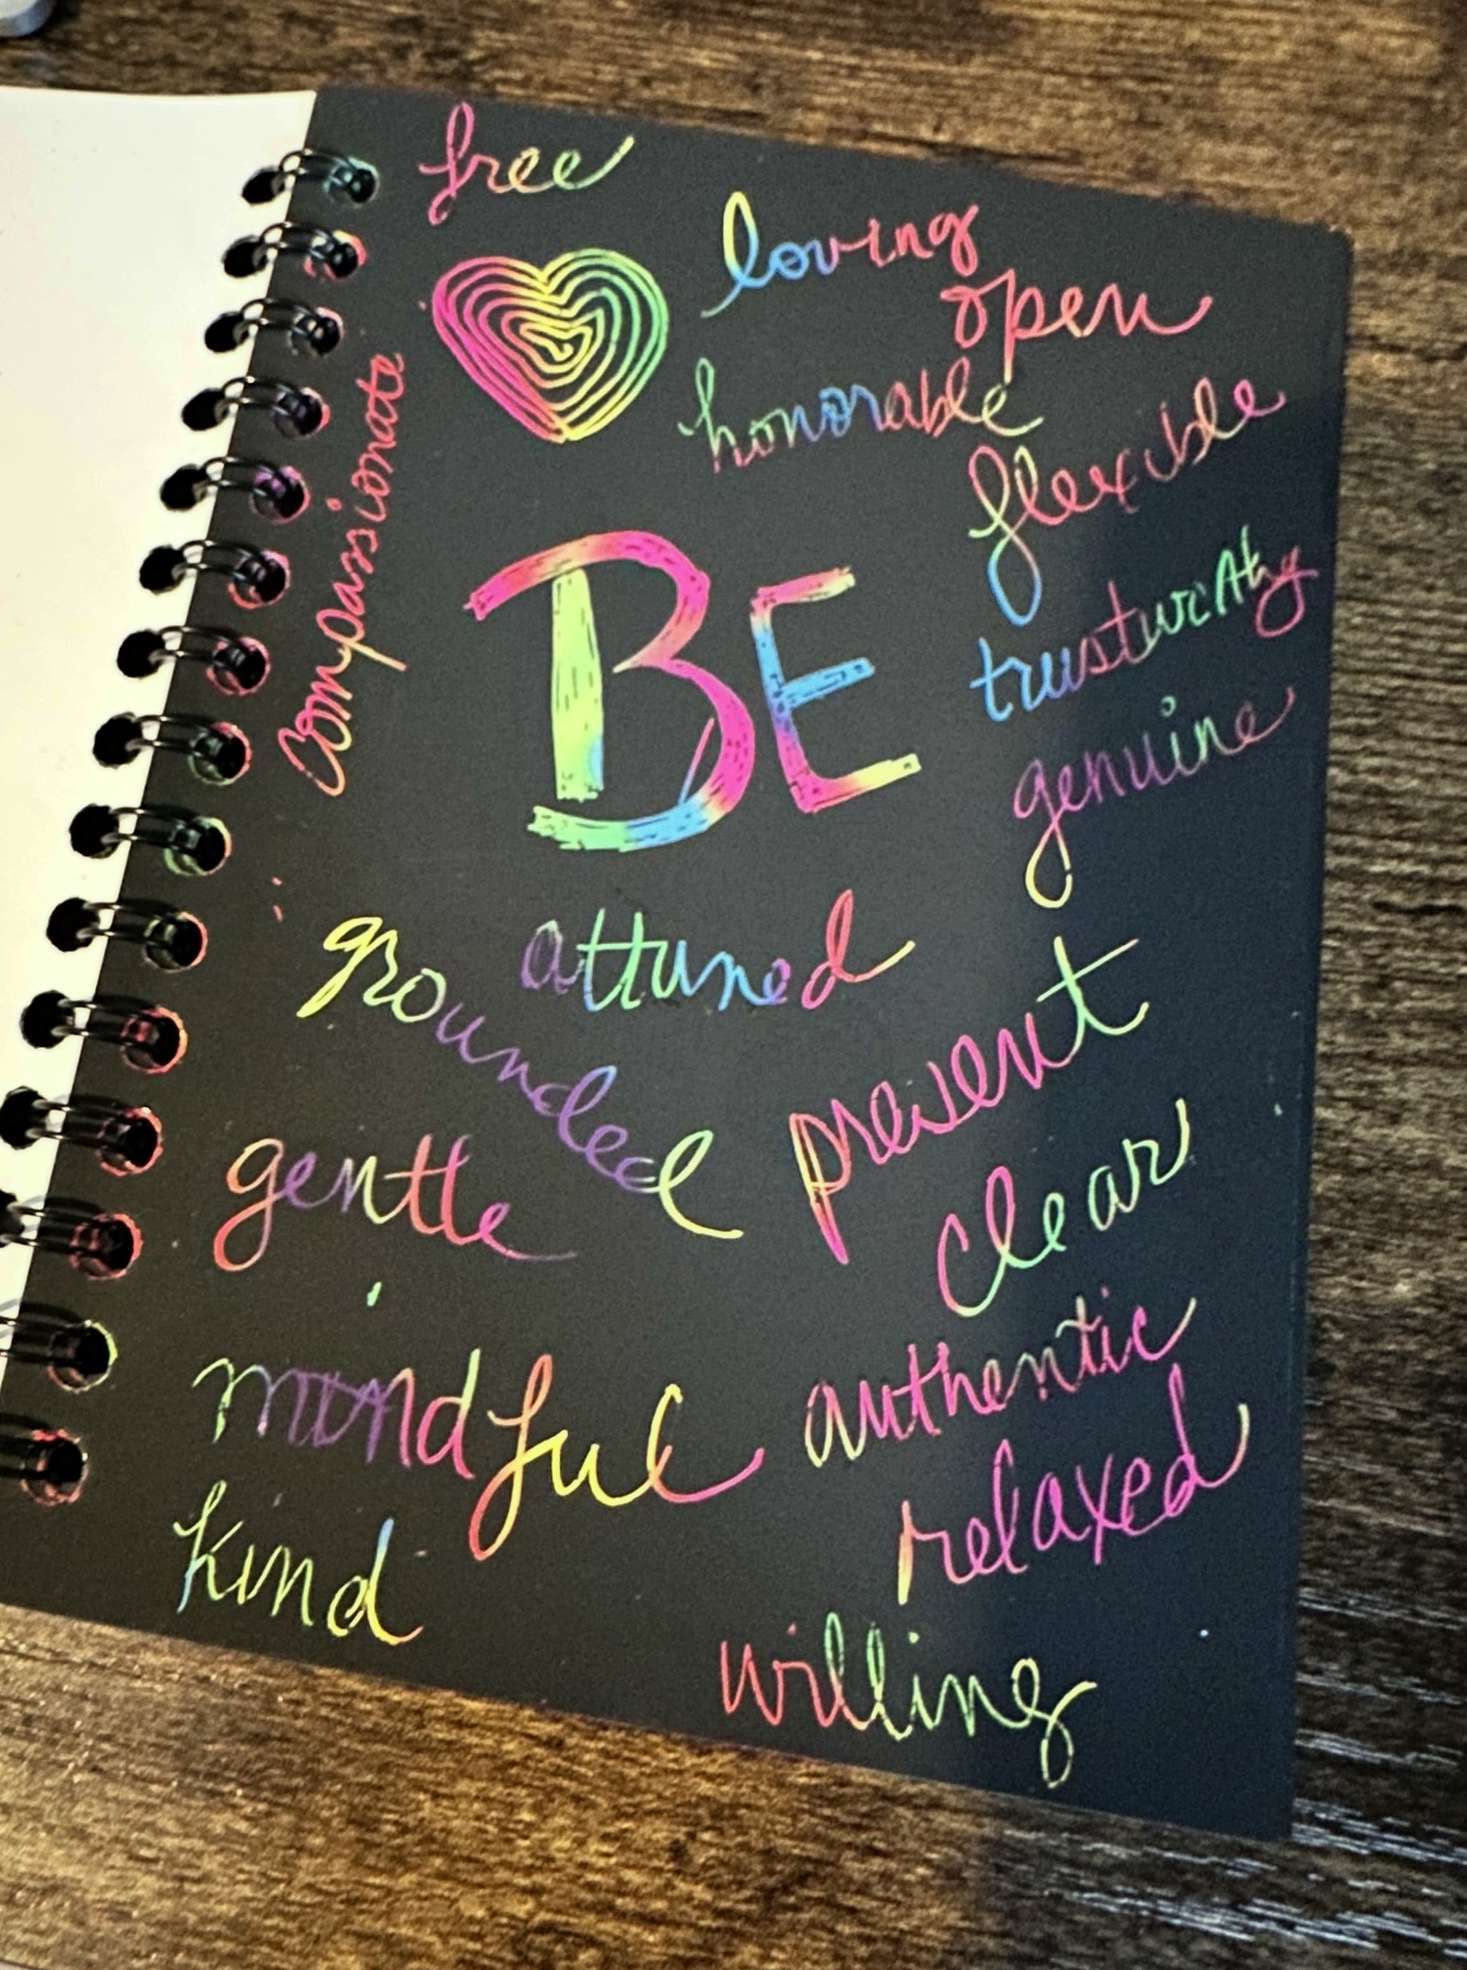 free
loving
open
honorable
flexible
compassionate
BE
trustworthy
genuine
attuned
grounded
present
gentle
clear
mindful
authentic
relaxed
kind
willing